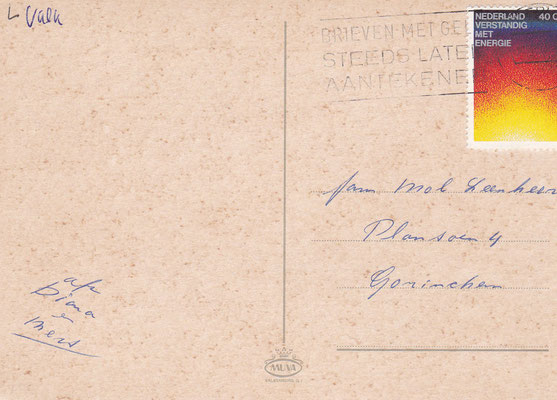 Valk
BRIEVEN MET GEL
STEEDS LATEN
AANTEKENEN
NEDERLAND 40 C
VERSTANDIG
MET
ENERGIE
fam Mol Leenheer
Plansoen 4
Gorinchem
afz
Diana
e
MUVA